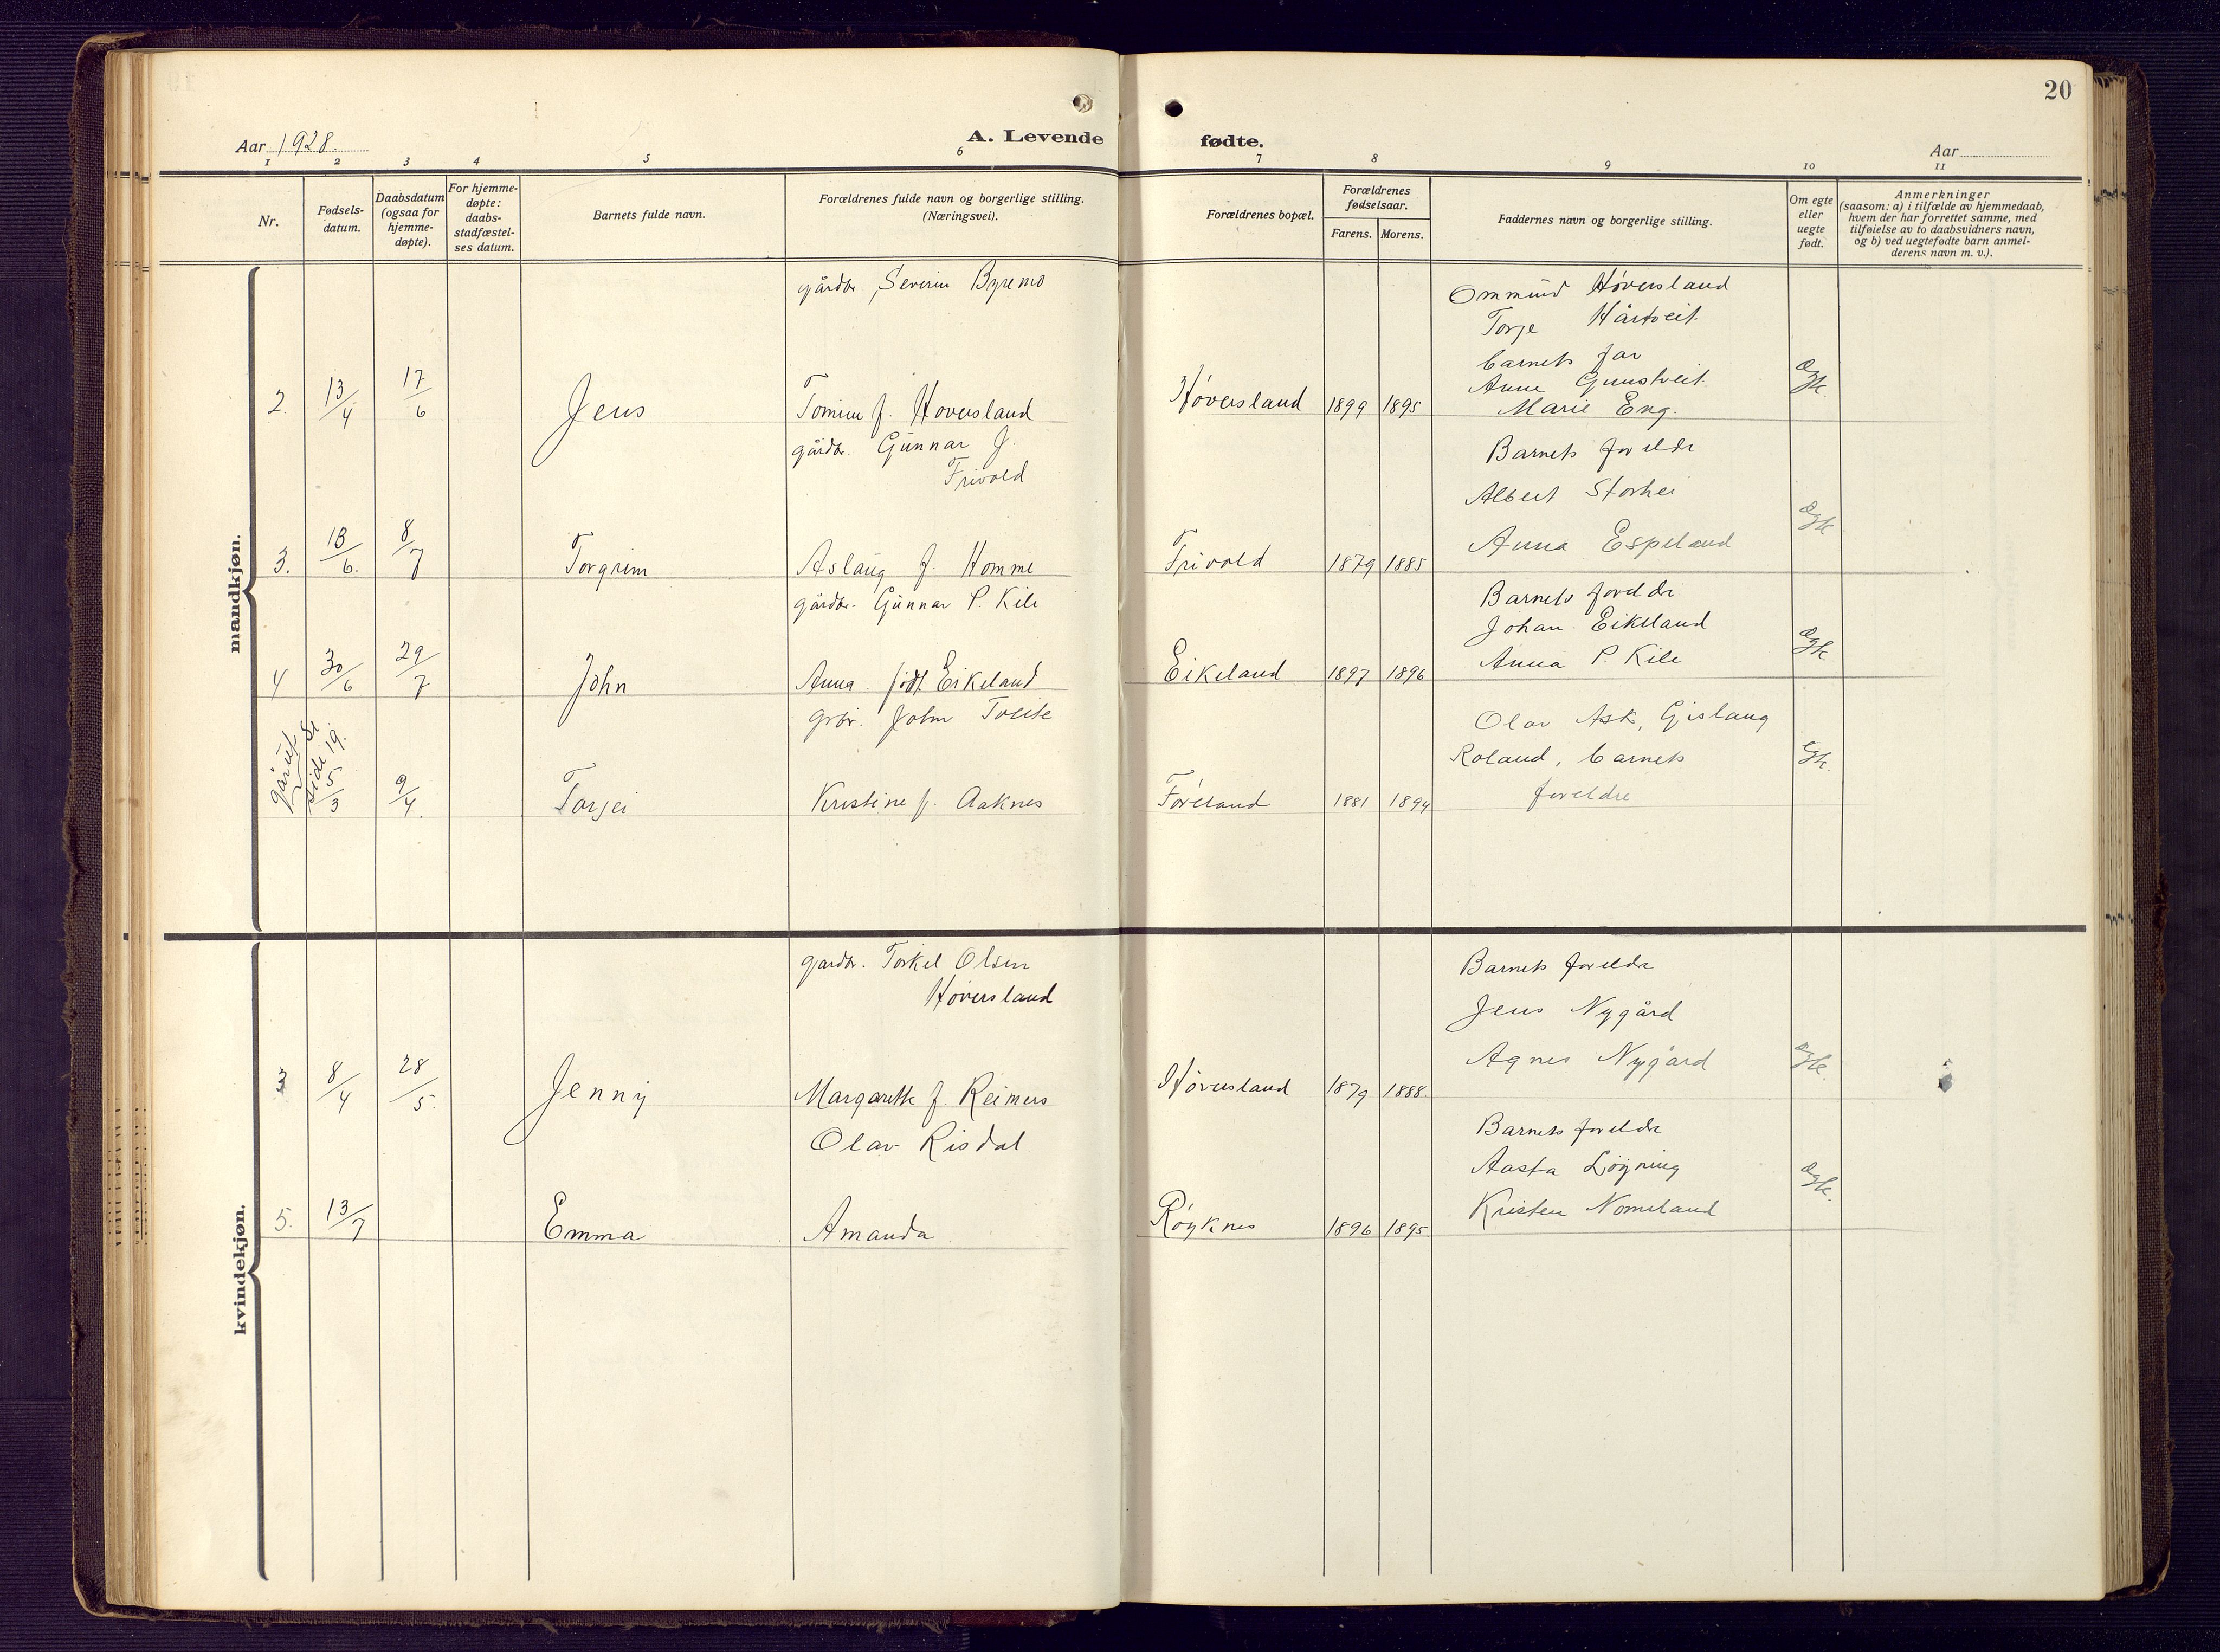 20
Aar 1928.
A. Levende fødte.
Aar
1 2 3 4 5 6 7 8 9 10 11
Nr.
Fødsels-
datum.
Daabsdatum
(ogsaa for
hjemme-
døpte).
For hjemme-
døpte:
daabs-
stadfæstel-
ses datum.
Barnets fulde navn.
Forældrenes fulde navn og borgerlige stilling.
(Næringsvei).
Forældrenes bopæl.
Forældrenes
fødselsaar.
Farens. Morens.
Faddernes navn og borgerlige stilling.
Om egte
eller
uegte
født.
Anmerkninger
(saasom: a) i tilfælde av hjemmedaab,
hvem der har forrettet samme, med
tilføielse av to daabsvidners navn,
og b) ved uegtefødte barn anmel-
derens navn m. v.).
mandkjøn.
gårdbr. Severin Byremo
2. 13/4 17/6 Jens
Tomine f. Høversland
Høversland 1899 1895
Ommund Høversland
Torje Hårtveit
barnets far
Anne Gunstveit
Marie Eng.
Ægte.
gårdbr. Gunnar J.
Trivold
3. 13/6. 8/7 Torgrim
Aslaug f. Homme
Trivold 1879 1885
Barnets foreldre
Albert Storhei
Anna Espeland
Ægte
gårdbr. Gunnar P. Kile
4 30/6 29/7 John
Anna født Eikeland
Eikeland 1897 1896
Barnets foreldre
Johan Eikeland
Anna P. Kile
Ægte
går ut
Se
side 19.
grbr. John Tveite
5/3 9/4. Torjei
Kristine f. Aaknes
Føreland 1881 1894
Olav Ask, Gislaug
Roland, barnets
foreldre
Egte.
kvindekjøn.
gardbr. Torkel Olsen
Høversland
8/4 28/5. Jenny
Margarethe f. Reimers
Høversland 1879 1888.
Barnets foreldre
Jens Nygård
Agnes Nygård
Ægte.
Olav Risdal
5. 13/7 Emma
Amanda
Røyknes 1896 1895
Barnets foreldre
Aasta Løyning
Kristen Nomeland
Ægte.